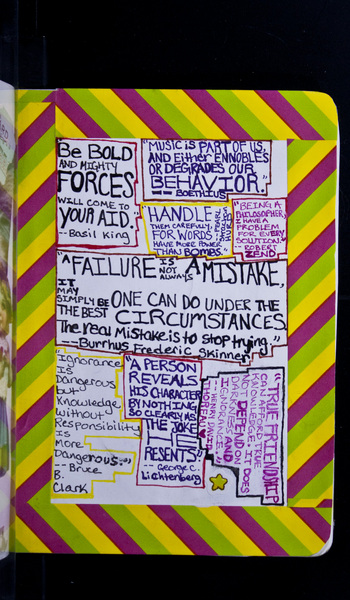 Be BOLD
AND MIGHTY
FORCES
WILL COME TO
YOUR AID.
-- Basil King
"MUSIC is PART OF US,
AND EitHER ENNOBLES
OR DEGRADES OUR
BEHAVIOR."
-- BOETHIUS
HANDLE
THEM CAREFULLY,
FOR WORDS
HAVE MORE POWER
THAN BOMBS.
"BEING A
PHILOSOPHER,
I HAVE A
PROBLEM
FOR EVERY
SOLUTION."
-- ROBERT
ZEND
"A FAILURE IS NOT ALWAYS A MISTAKE,
IT
MAY
SIMPLY BE ONE CAN DO UNDER THE
THE BEST CIRCUMSTANCES.
The real Mistake is to stop trying."
-- Burrhus Frederic Skinner
"Ignorance
IS
Dangerous
but
Knowledge
Without
Responsibility
IS
More
Dangerous."
-- Bruce
B.
Clark
"A PERSON
REVEALS
HIS CHARACTER
BY NOTHING
SO CLEARLY AS
THE JOKE
HE
RESENTS"
-- GEORGE C.
Lichtenberg
"TRUE FRIENDSHIP
CAN AFFORD TRUE
KNOWLEDGE. IT DOES
NOT DEPEND ON
DARKNESS AND
IGNORANCE."
-- HENRY DAVID
THOREAU